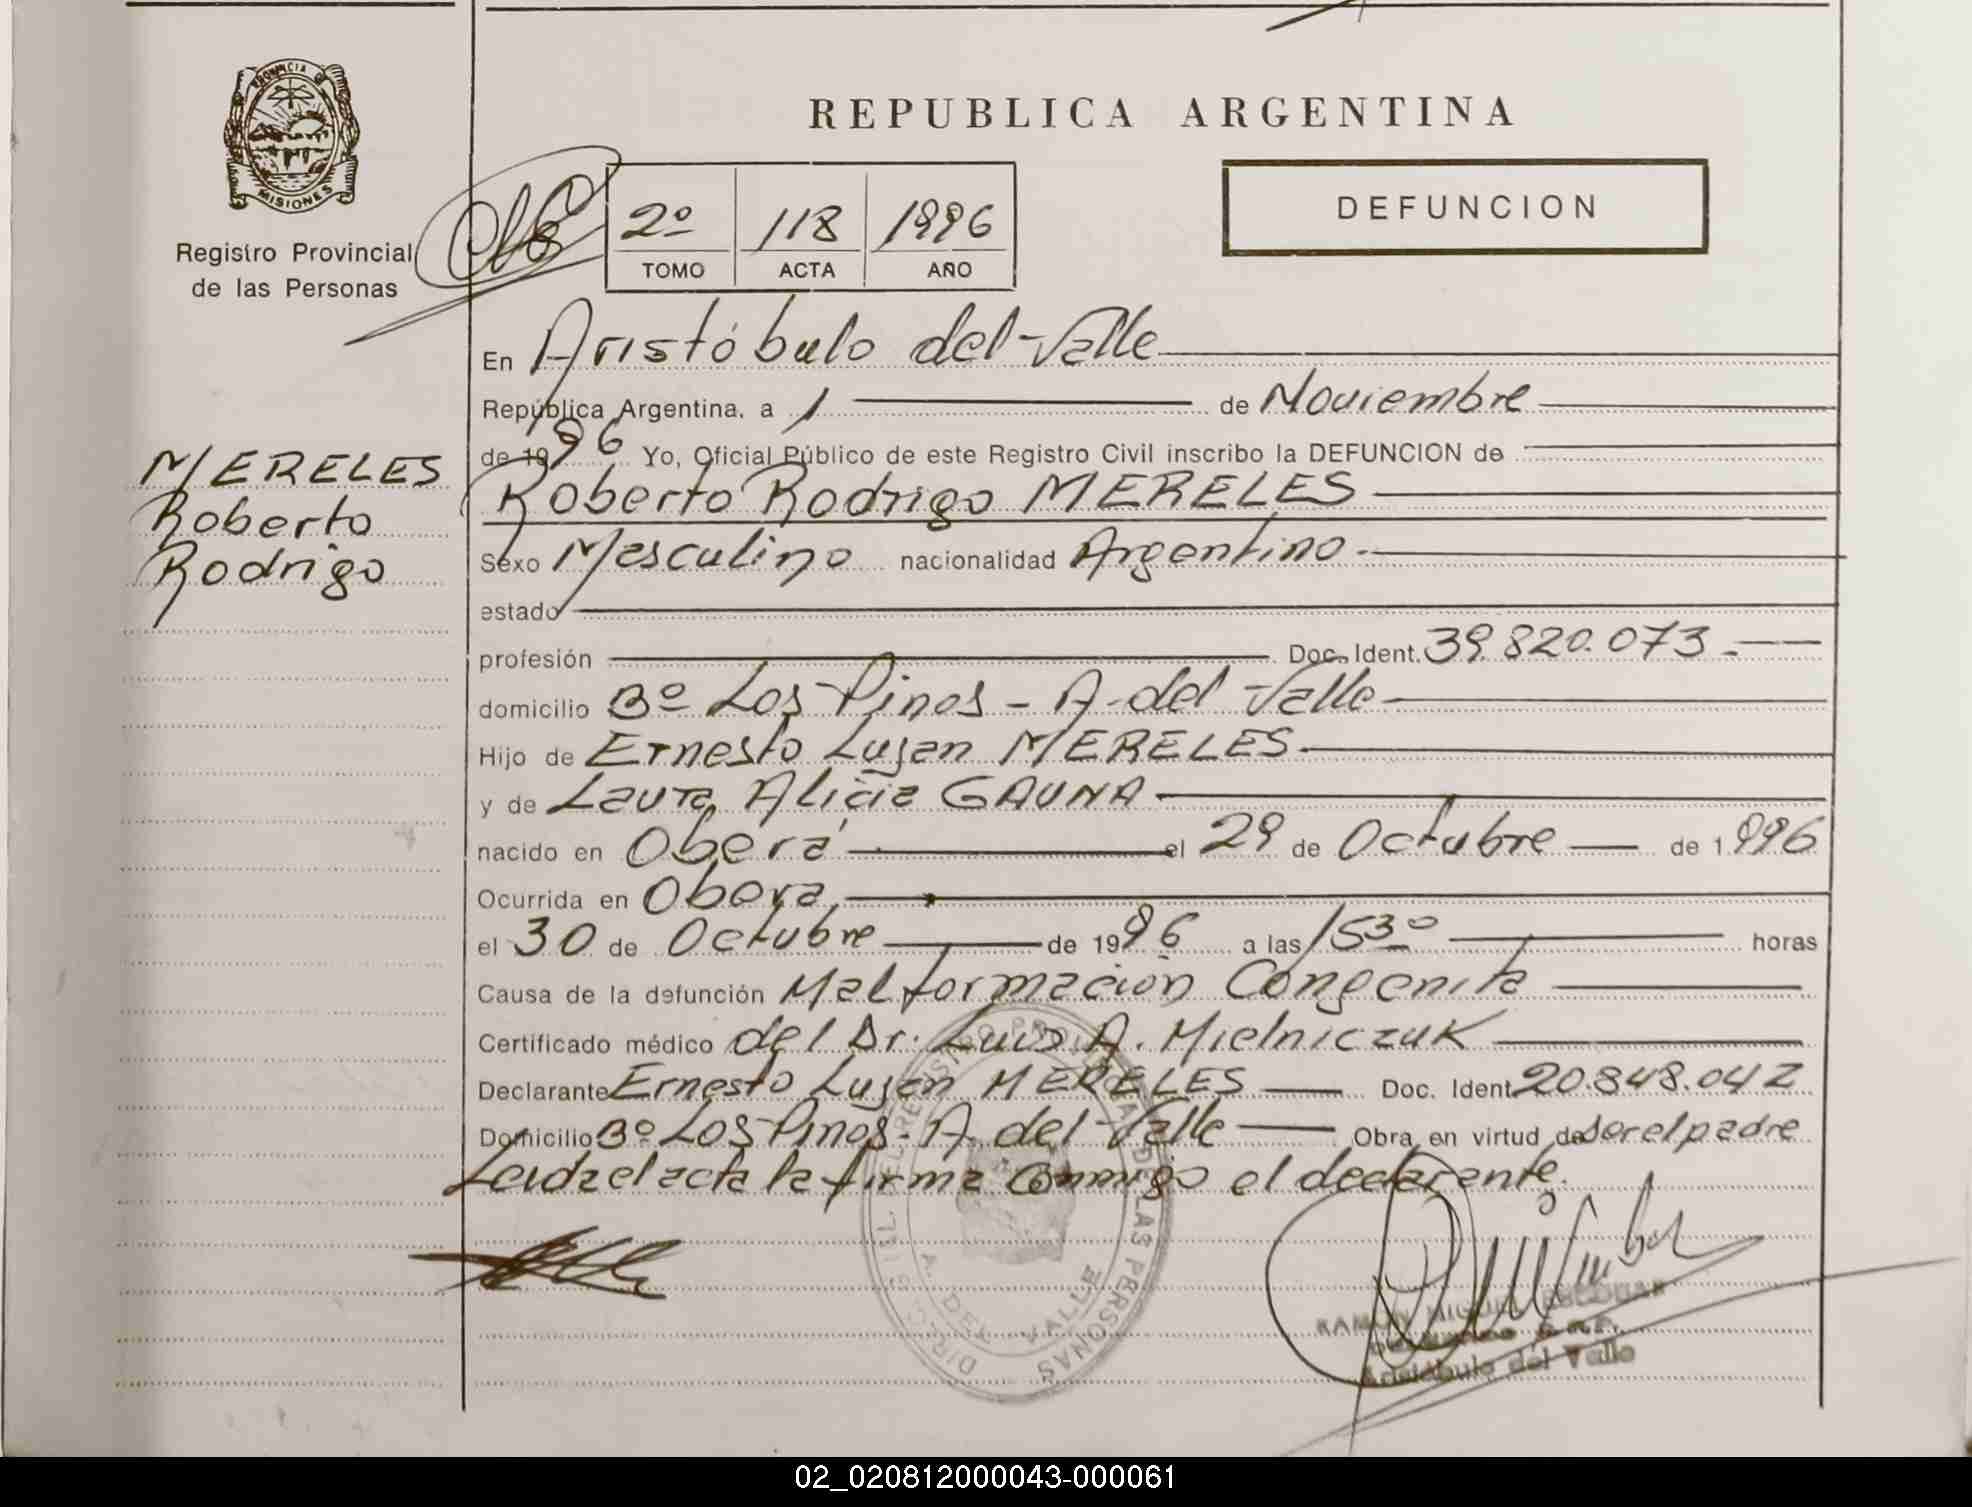 REPUBLICA ARGENTINA
PROVINCIA DE
MISIONES
Registro Provincial
de las Personas
2º 118 1996
TOMO ACTA AÑO
DEFUNCION
En Aristóbulo del Valle
República Argentina, a 1 de Noviembre
de 1996 Yo, Oficial Público de este Registro Civil inscribo la DEFUNCION de
MERELES
Roberto
Rodrigo
Roberto Rodrigo MERELES
Sexo Masculino nacionalidad Argentino.
estado
profesión Doc. Ident. 39.820.073.
domicilio Bº Los Pinos - A. del Valle
Hijo de Ernesto Lujan MERELES
y de Laura Alicia GAUNA
nacido en Oberá el 29 de Octubre de 1996
Ocurrida en Obera
el 30 de Octubre de 1996 a las 1530 horas
Causa de la defunción Malformación Congenita
Certificado médico del Dr. Luis A. Mielniczuk
Declarante Ernesto Lujan MERELES Doc. Ident. 20.848.042
Domicilio Bº Los Pinos - A. del Valle Obra en virtud de ser el padre
Leida el acta la firma conmigo el declarante.
A. DEL VALLE
RAMON MIGUEL ESCOBAR
Aristóbulo del Valle
02_020812000043-000061